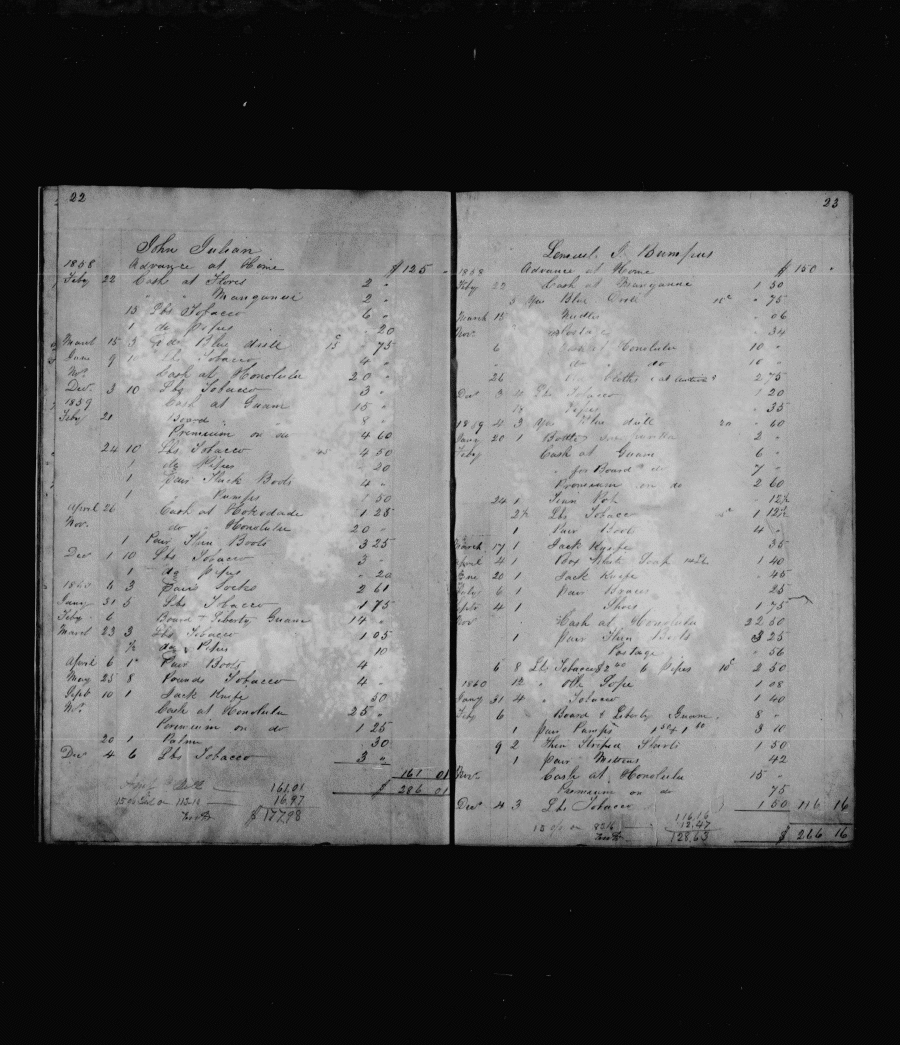 22
John Julian
1858 Advance at Home $125 "
Feby 22 Cash at Flores 2 "
" " Manganue 2 "
15 Lbs Tobacco 6 "
1 do Pipes " 20
March 15 3 Blue drill " 75
June 9 1 Lbs Tobacco 4 "
Nov. Cash at Honolulu 20 "
Dec. 3 10 Lbs Tobacco 3 "
1859 Cash at Guam 15 "
Feby 21 Board " 8 "
Premium on do 4 60
24 10 Lbs Tobacco 4 50
1 do Pipes " 20
1 Pair Thick Boots 4 "
1 " Pumps 1 50
April 26 Cash at Hokodade 1 25
Nov. do " Honolulu 20 "
1 Pair Thin Boots 3 25
Dec 1 10 Lbs Tobacco 3 "
1 do Pipes " 20
1860 6 3 Pairs Socks 2 61
Jany 31 5 Lbs Tobacco 1 75
Feby 6 Board & Liberty Guam 14 "
March 23 3 Lbs Tobacco 1 05
½ do Pipes 10
April 6 1 Pair Boots 4 "
May 25 8 Pounds Tobacco 4 "
Sept 10 1 Jack Knife 50
Nv. Cash at Honolulu 25 "
Premium on do 1 25
20 1 Palm 30
Dec 4 6 Lbs Tobacco 3 "
161 01
$ 286 01
161.01
16.97
$177.98
23
Lemuel Bumpus
1858 Advance at Home $ 150 "
Feby 22 Cash at Manganue 1 50
3 Yds Blue Drill " 75
March 15 Needles " 06
Nov. Postage " 34
6 Cash at Honolulu 10 "
" do do 10 "
26 2 75
Dec 3 4 Lbs Tobacco 1 20
Pipes " 35
1859 4 3 Yds Blue drill 20 " 60
Jany 20 1 Bottle 2 "
Feby Cash at Guam 6 "
" for Board " do 7 "
Premium on do 2 60
24 1 Tin Pot " 12½
2½ Lbs Tobacco 1 12½
1 Pair Boots 4 "
March 17 1 Jack Knife 35
April 4 1 Box White Soap 1 40
June 20 1 Jack Knife " 45
July 6 1 Pair Braces 25
Sept 4 1 " Shoes 1 75
Nov Cash at Honolulu 22 50
1 Pair Thin Boots 3 25
Postage " 56
6 8 Lbs Tobacco $2.00 6 Pipes 2 50
1860 12 " Soap 1 08
Jany 31 4 " Tobacco 1 40
Feby 6 Board & Liberty Guam 8 "
1 Pair Pumps 3 10
9 2 Thin Striped Shirts 1 50
1 pair Mittens 42
Nov. Cash at Honolulu 15 "
Premium on do 75
Dec 4 3 Lbs Tobacco 1 50 116 16
116.16
12.47
128.63
$ 266 16